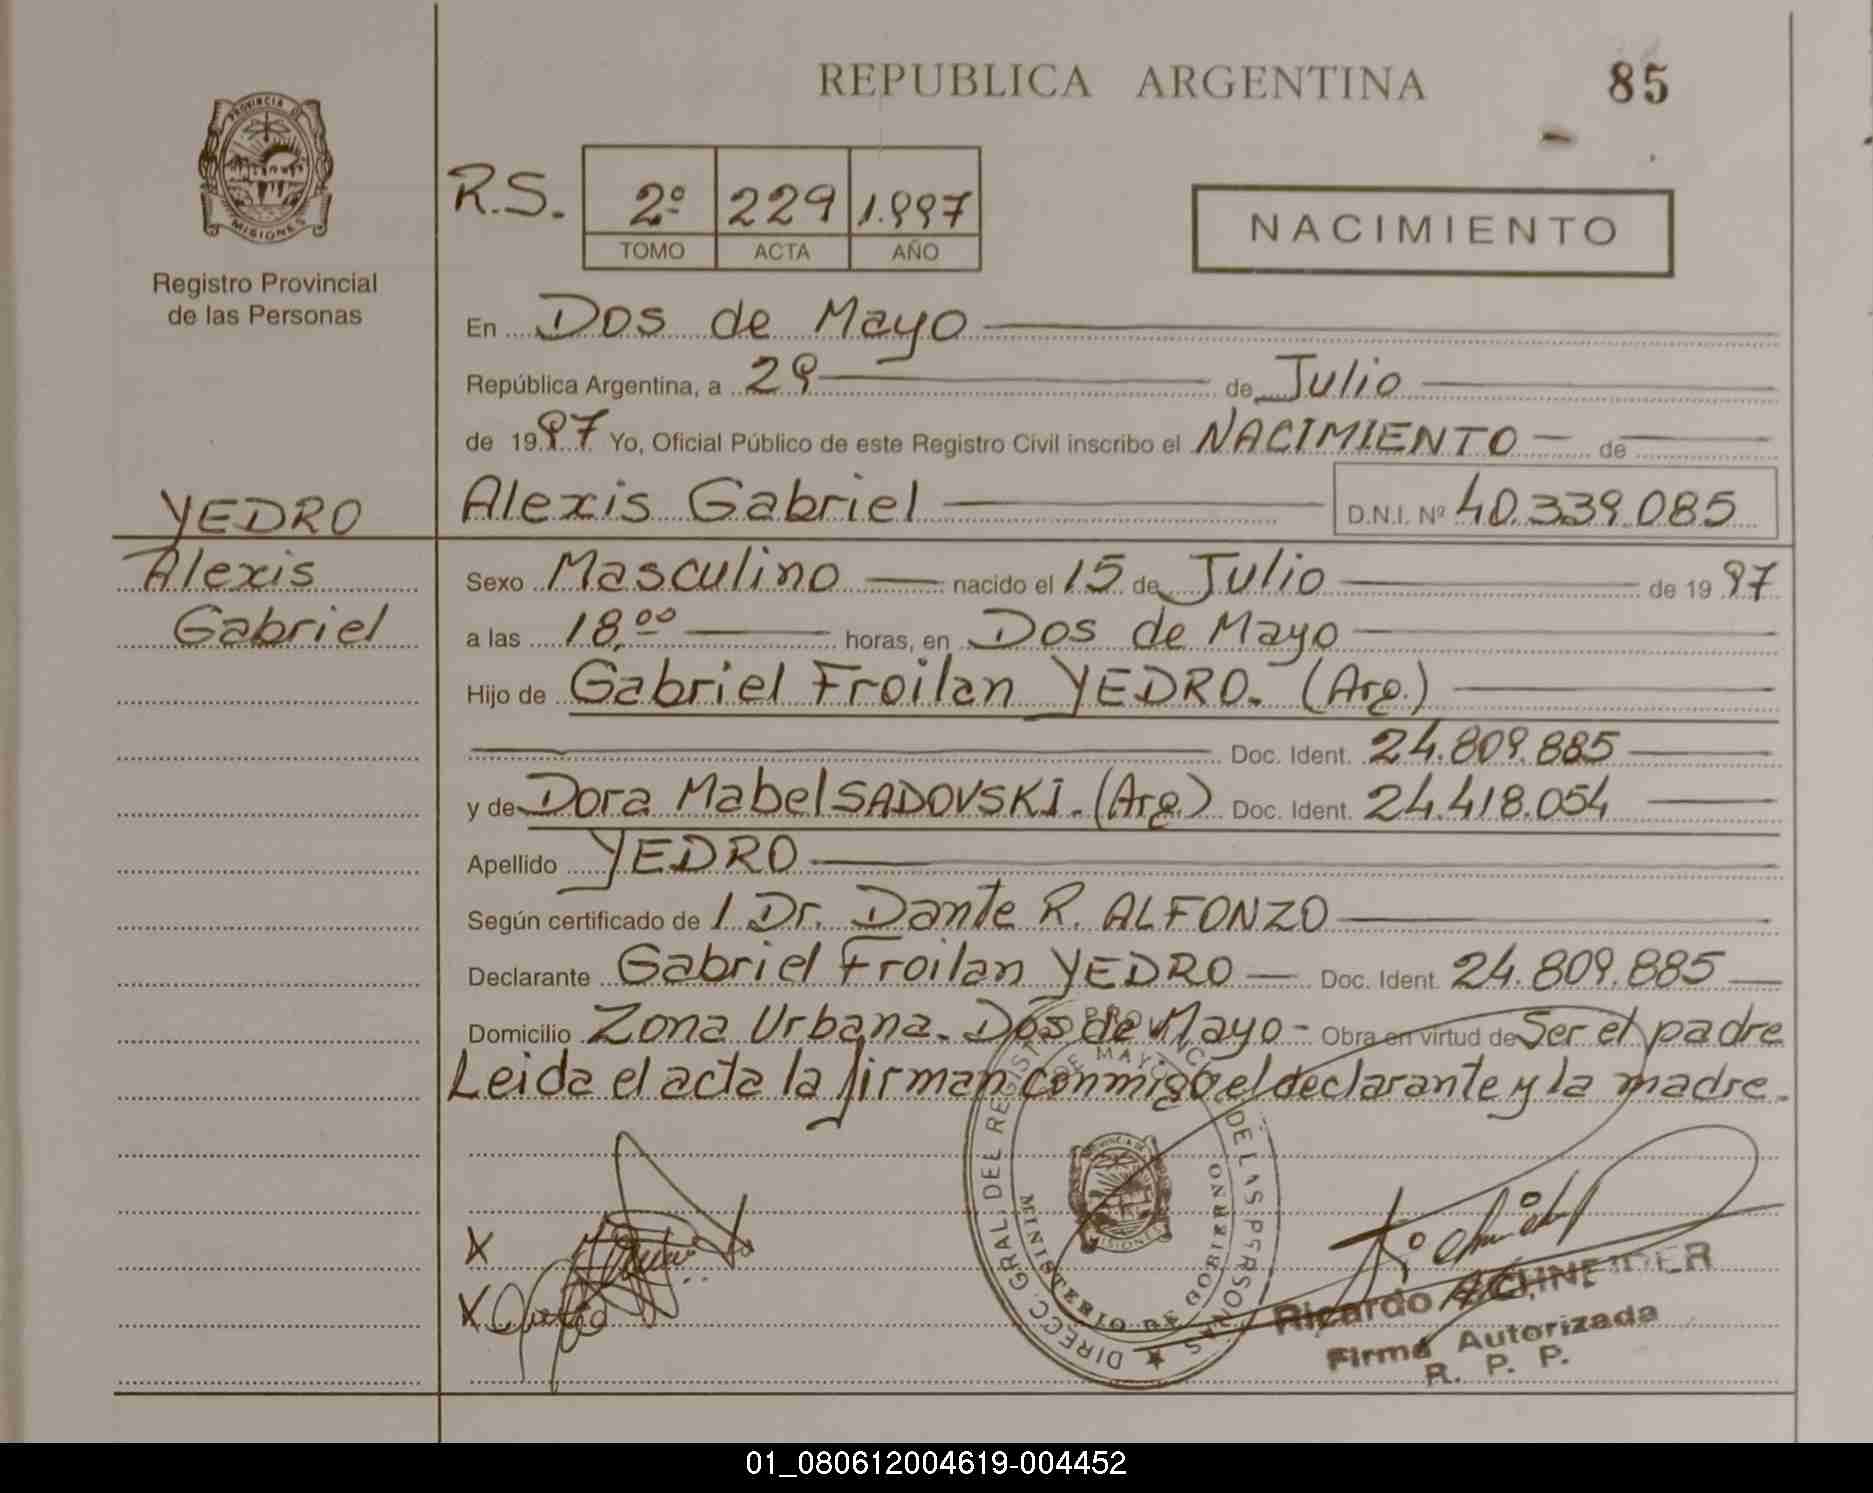 REPUBLICA ARGENTINA 85
PROVINCIA DE
MISIONES
Registro Provincial
de las Personas
R.S. 2º 229 1.997
TOMO ACTA AÑO
NACIMIENTO
En Dos de Mayo
República Argentina, a 29 de Julio
de 1997 Yo, Oficial Público de este Registro Civil inscribo el NACIMIENTO de
YEDRO
Alexis
Gabriel
Alexis Gabriel D.N.I. Nº 40.339.085
Sexo Masculino nacido el 15 de Julio de 1997
a las 18,00 horas, en Dos de Mayo
Hijo de Gabriel Froilan YEDRO. (Arg.)
Doc. Ident. 24.809.885
y de Dora Mabel SADOVSKI. (Arg.) Doc. Ident. 24.418.054
Apellido YEDRO
Según certificado de 1 Dr. Dante R. ALFONZO
Declarante Gabriel Froilan YEDRO Doc. Ident. 24.809.885
Domicilio Zona Urbana. Dos de Mayo - Obra en virtud de Ser el padre
Leida el acta la firman conmigo el declarante y la madre.
X
X
DIRECC. GRAL. DEL REGISTRO PROVINC. DE LAS PERSONAS
MINISTERIO DE GOBIERNO
DE MAYO
MISIONES
Ricardo SCHNEIDER
Firma Autorizada
R. P. P.
01_080612004619-004452